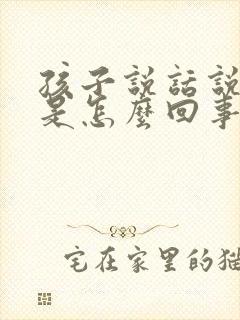 孩子說話說
是怎麼回事
宅在家里的猫